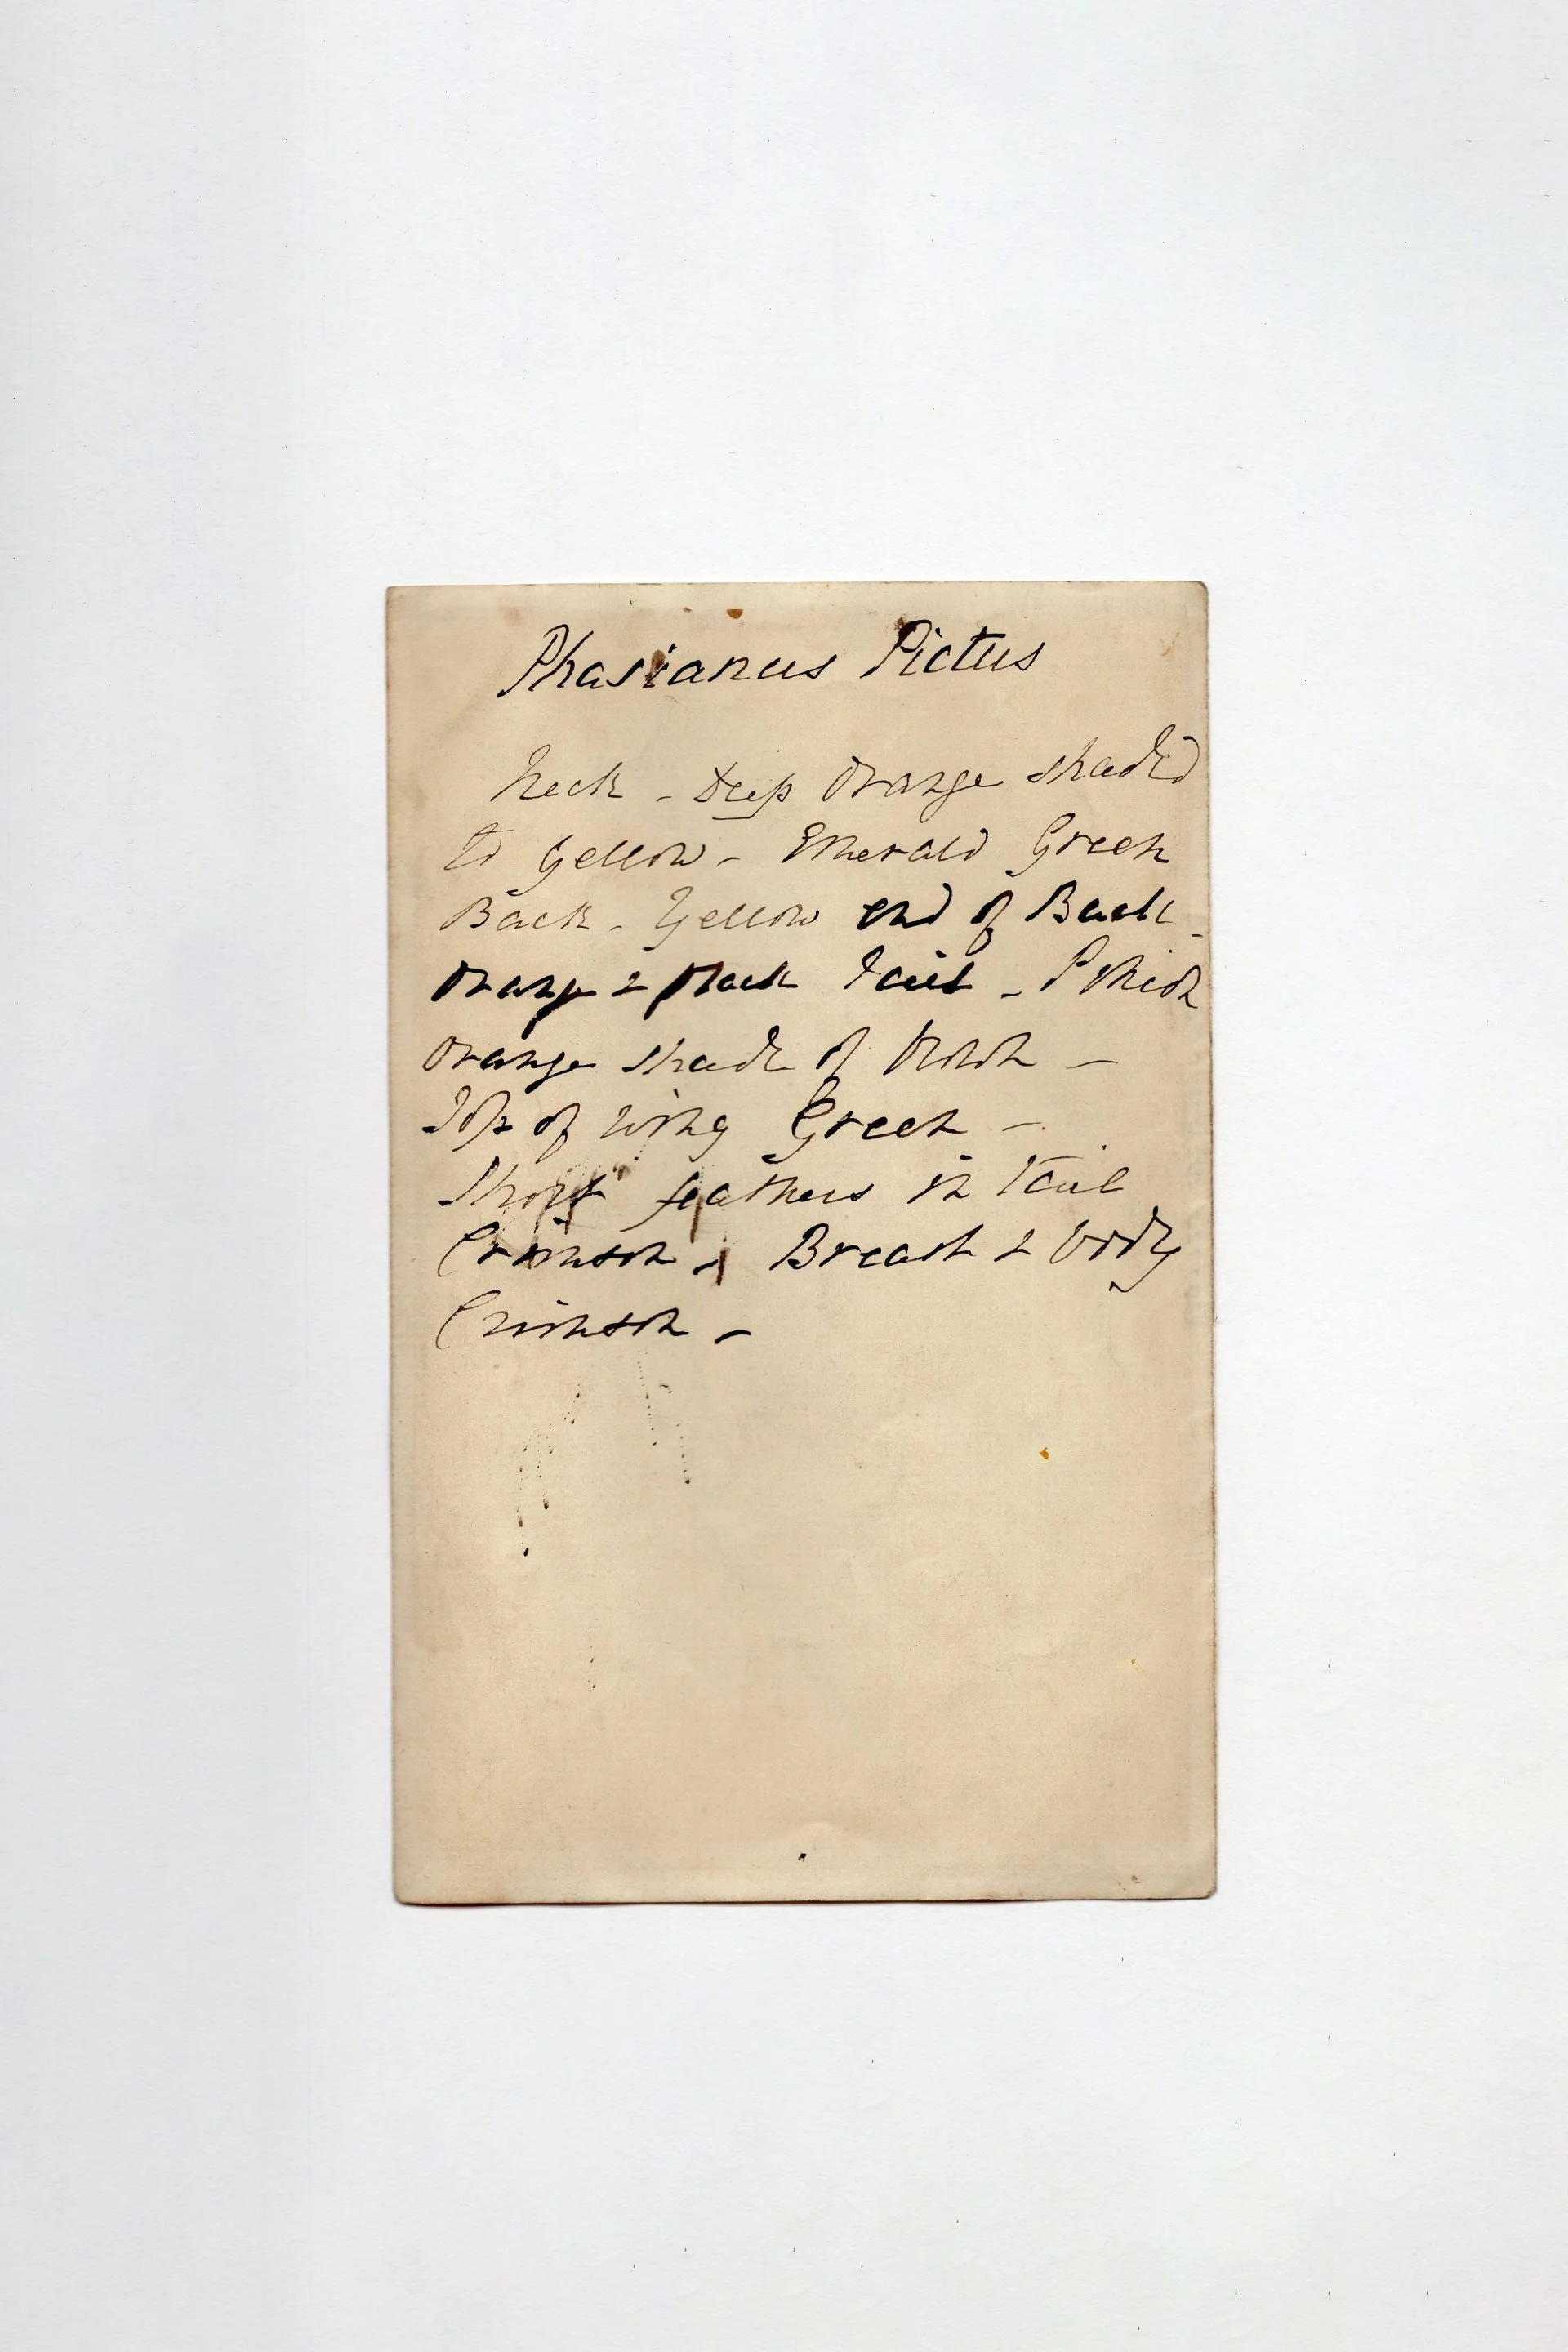 Phasianus Pictus
Neck - Deep Orange shaded
to Yellow - Emerald Green
Back - Yellow end of Back -
Orange & black Tail -
Orange shade of brown -
Tops of wing Green -
Short feathers in tail
Crimson - Breast & body
Crimson -